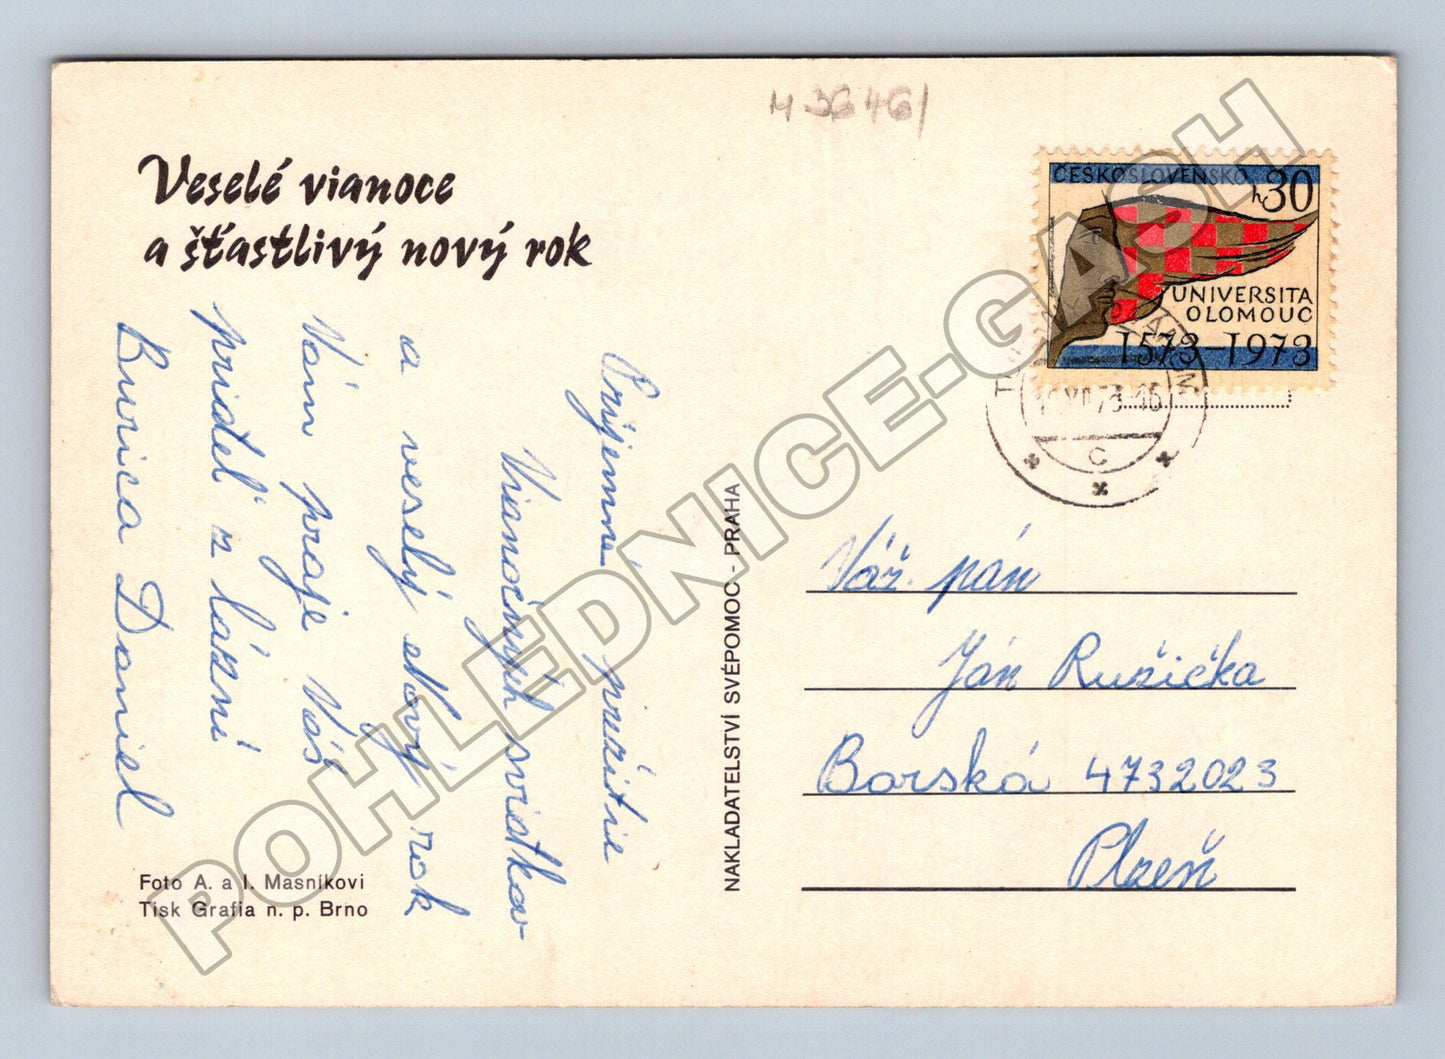 M 36461
Veselé vianoce
a šťastlivý nový rok
Príjemné prežitie
Vianočných sviatkov
a veselý Nový rok
Vám praje Váš
priateľ z lázní
Burica Daniel
Foto A. a I. Masníkovi
Tisk Grafia n. p. Brno
NAKLADATELSTVÍ SVÉPOMOC - PRAHA
ČESKOSLOVENSKO
h 30
UNIVERSITA
OLOMOUC
1573-1973
XII.73-16
C
Váž. pán
Ján Ružička
Borská 4732023
Plzeň
POHLEDNICE-GASH